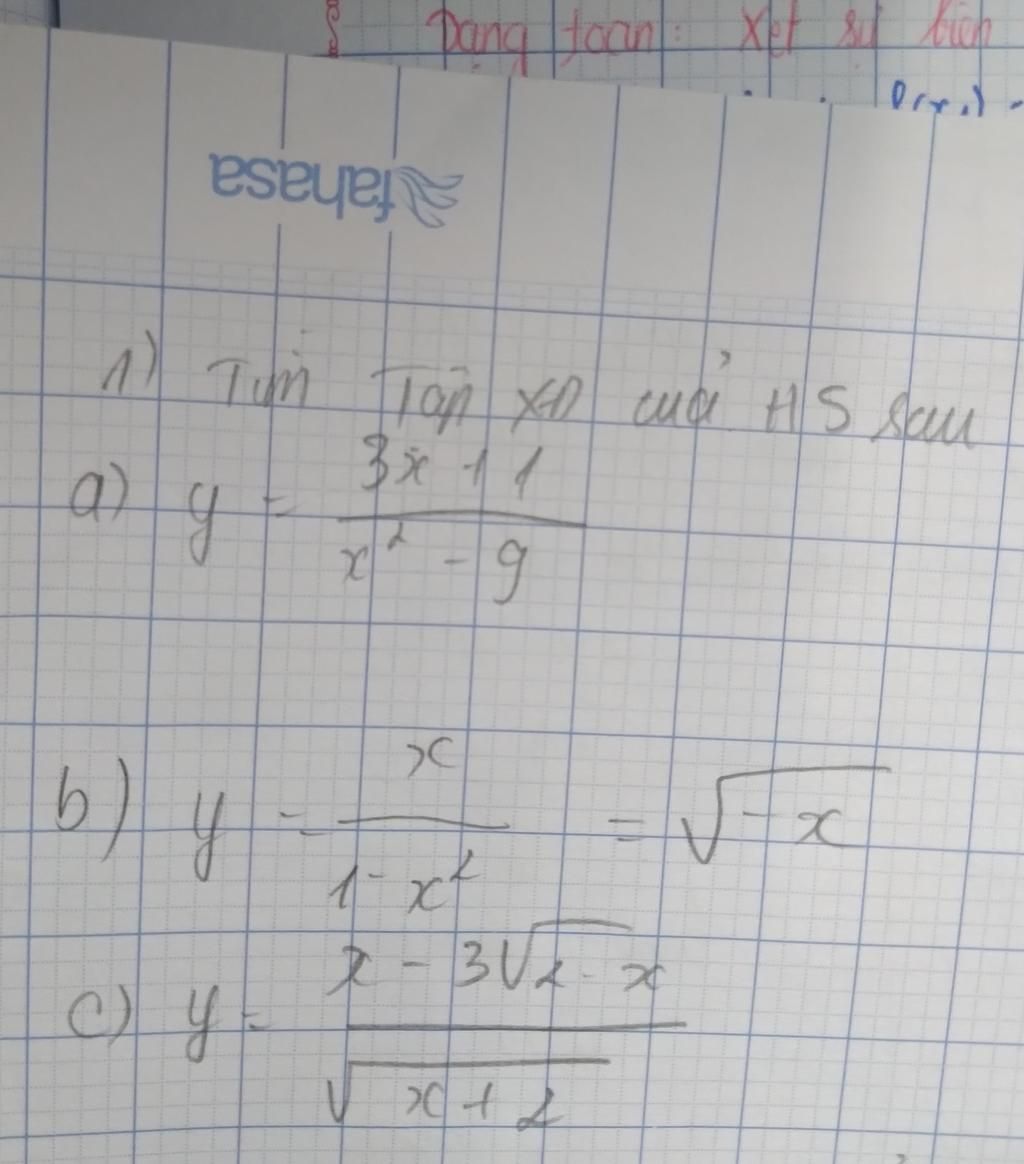 Dạng toán: Xét sự biến
fahasa
1) Tìm Tập XĐ của HS sau
a) y = \frac{3x + 1}{x² - 9}
b) y = \frac{x}{1 - x²} = √(-x)
c) y = \frac{x - 3√(2 - x)}{√(x + 2)}